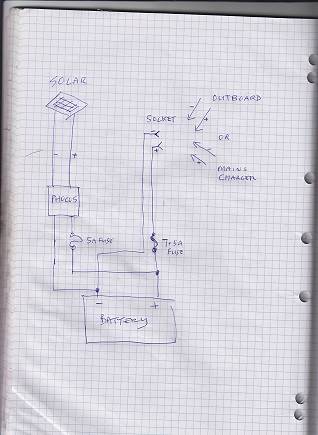 SOLAR
OUTBOARD
SOCKET
OR
MAINS
CHARGER
- +
PHOCOS
5A FUSE
7.5A
FUSE
- +
BATTERY